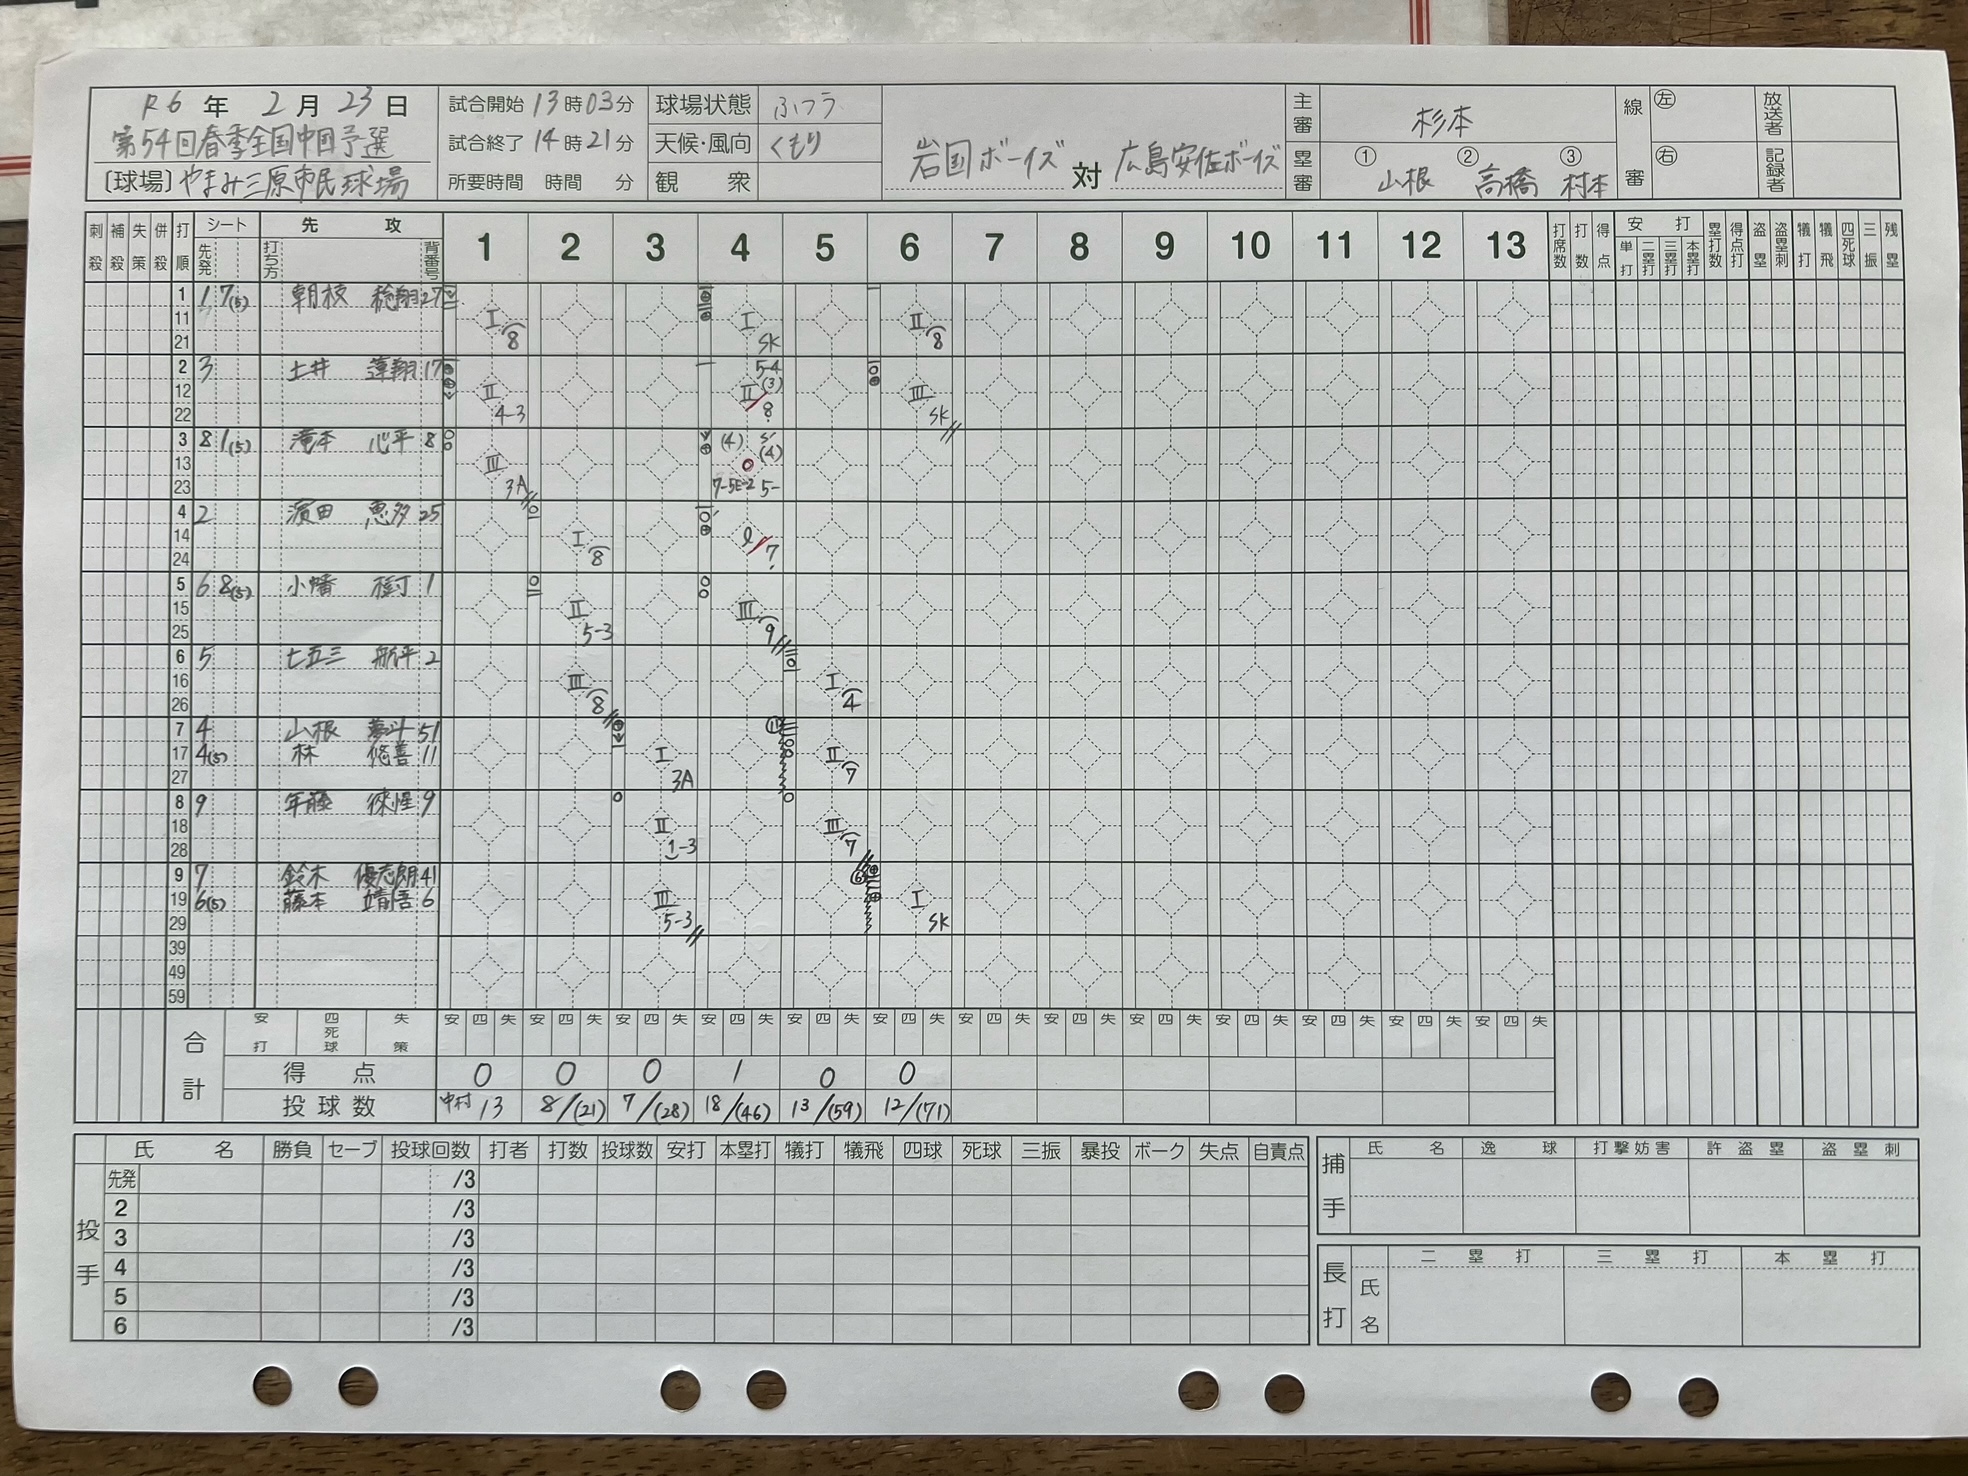 R6 年 2 月 23 日
第54回春季全国中国予選
〔球場〕やまみ三原市民球場
試合開始 13時03分
試合終了 14時21分
所要時間 時間 分
球場状態 ふつう
天候・風向 くもり
観衆
岩国ボーイズ 対 広島安佐ボーイズ
主審 杉本
塁審 ① 山根 ② 高橋 ③ 村本
線審 左 右
放送者
記録者
刺殺 補殺 失策 併殺 打順 シート 先発 先攻 打ち方 背番号 1 2 3 4 5 6 7 8 9 10 11 12 13 打席数 打数 得点 安打 単打 二塁打 三塁打 本塁打 塁打数 得点打 盗塁 盗塁刺 犠打 犠飛 四死球 三振 残塁
1 1 7(5) 朝枝 27 I 8 I SK II 8
11
21
2 3 土井 蓮翔 17 II 4-3 5-4 (3) II 8 III SK
12
22
3 8 1(5) 滝本 心平 8 III 3A (4) (4) 7-5E-2 5-
13
23
4 2 濱田 恵多 25 I 8 l 7
14
24
5 6 8(5) 小幡 1 II 5-3 III 9
15
25
6 5 七五三 2 III 8 I 4
16
26
7 4 山根 夢斗 51 I 3A
17 4(5) 林 悠善 11 II 7
27
8 9 年藤 9 II 1-3 III 7
18
28
9 7 鈴木 優志朗 41 III 5-3
19 6(5) 藤本 6 I SK
29
39
49
59
合計 安打 四死球 失策 安 四 失 安 四 失 安 四 失 安 四 失 安 四 失 安 四 失 安 四 失 安 四 失 安 四 失 安 四 失 安 四 失 安 四 失 安 四 失
得点 0 0 0 1 0 0
投球数 中村 13 8/(21) 7/(28) 18/(46) 13/(59) 12/(71)
投手 氏名 勝負 セーブ 投球回数 打者 打数 投球数 安打 本塁打 犠打 犠飛 四球 死球 三振 暴投 ボーク 失点 自責点
先発 /3
2 /3
3 /3
4 /3
5 /3
6 /3
捕手 氏名 逸球 打撃妨害 許盗塁 盗塁刺
長打 氏名 二塁打 三塁打 本塁打